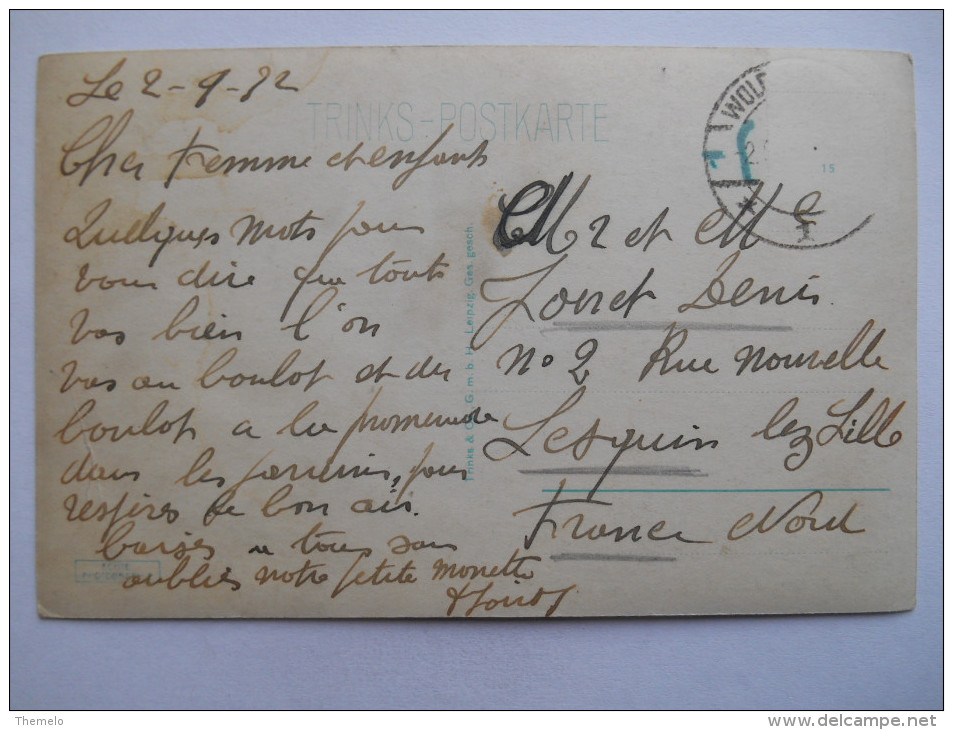 Le 2-9-32
TRINKS-POSTKARTE
Cher Femme et enfants
Quelques mots pour
vous dire que touts
vas bien l'on
vas au boulot et du
boulot a la promenade
dans les , pour
respirer le bon air.
baisés a tous sans
oublier notre petite Monette
Trinks & Co. G. m. b. H. Leipzig. Ges. gesch.
WOL
15
Mr et M
Denis
No 2 Rue Nouvelle
Lesquin lez Lille
France Nord
Themelo
www.delcampe.net